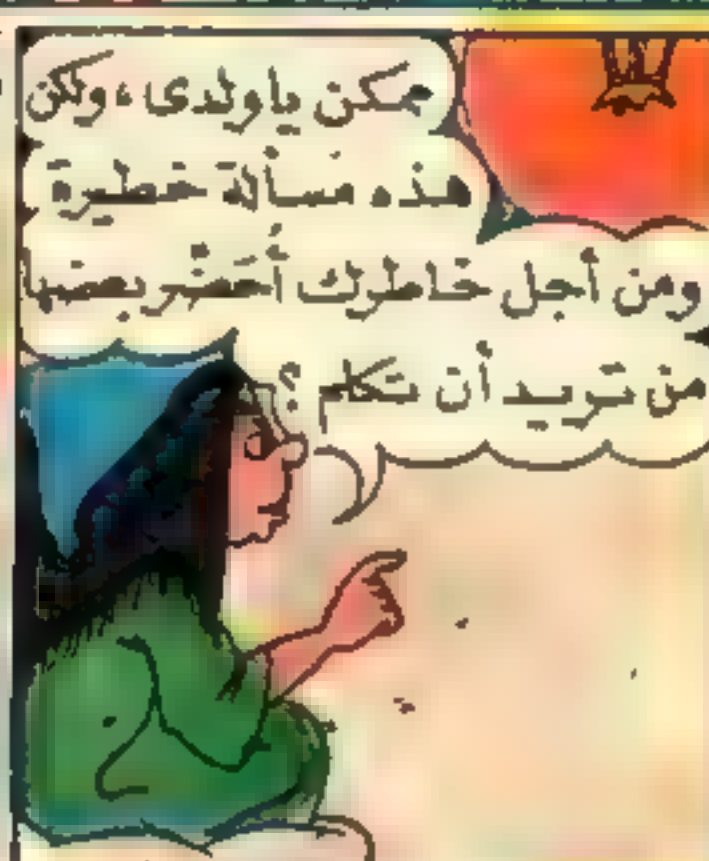 ممكن ياولدى، ولكن
هذه مسألة خطيرة
ومن أجل خاطرك أحضر بعضها
من تريد أن تكلم؟